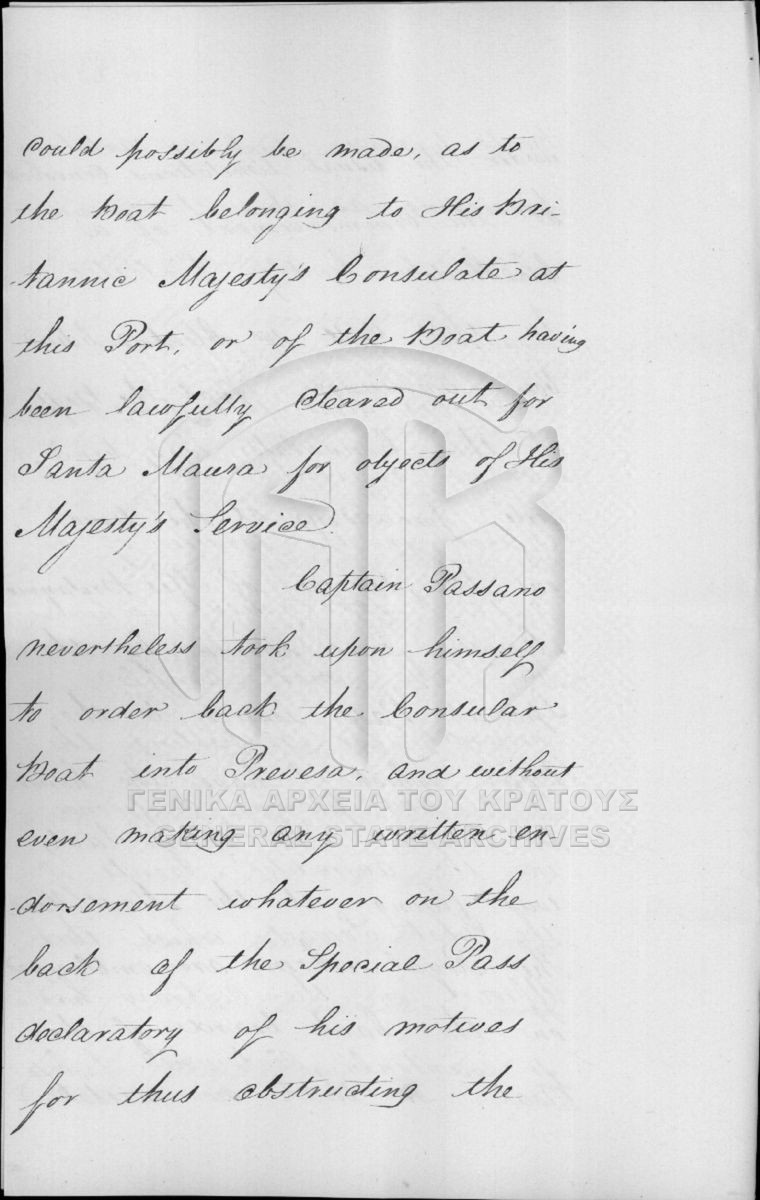 could possibly be made, as to
the Boat belonging to His Bri-
-tannic Majesty's Consulate at
this Port, or of the Boat having
been lawfully cleared out for
Santa Maura for objects of His
Majesty's Service.
Captain Passano
nevertheless took upon himself
to order back the Consular
Boat into Prevesa, and without
ΓΕΝΙΚΑ ΑΡΧΕΙΑ ΤΟΥ ΚΡΑΤΟΥΣ
even making any written en
GENERAL STATE ARCHIVES
-dorsement whatever on the
back of the Special Pass
declaratory of his motives
for thus obstructing the